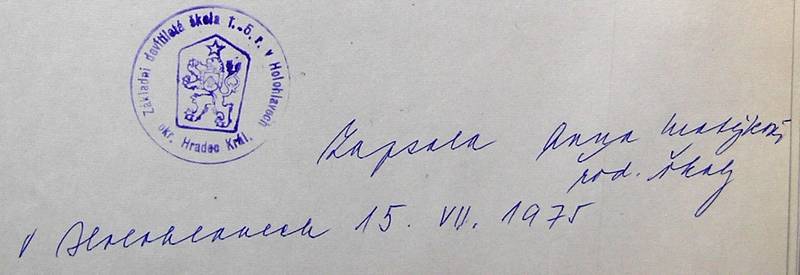 Základní devítiletá škola 1.-5.r. v Holohlavech
okr. Hradec Král.
Zapsala Anna Matějková
řed. školy
V Holohlavech 15. VII. 1975